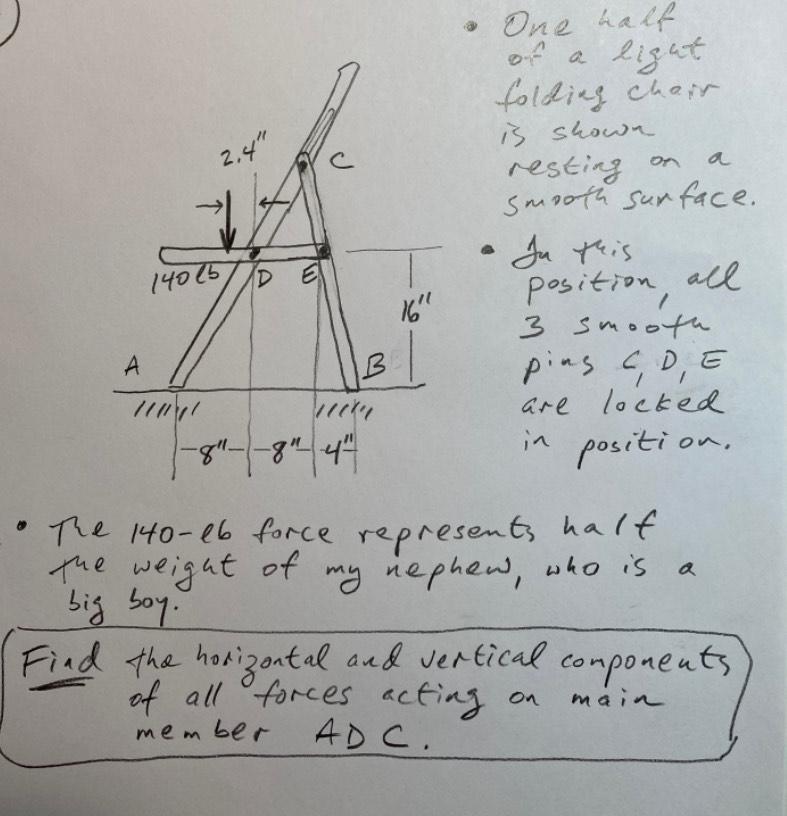 • One half
of a light
folding chair
is shown
resting on a
smooth surface.
2.4"
C
• In this
position, all
3 smooth
pins C, D, E
are locked
in position.
140 lb
D
E
16"
A
B
8"
8"
4"
• The 140-lb force represents half
the weight of my nephew, who is a
big boy.
Find the horizontal and vertical components
of all forces acting on main
member ADC.